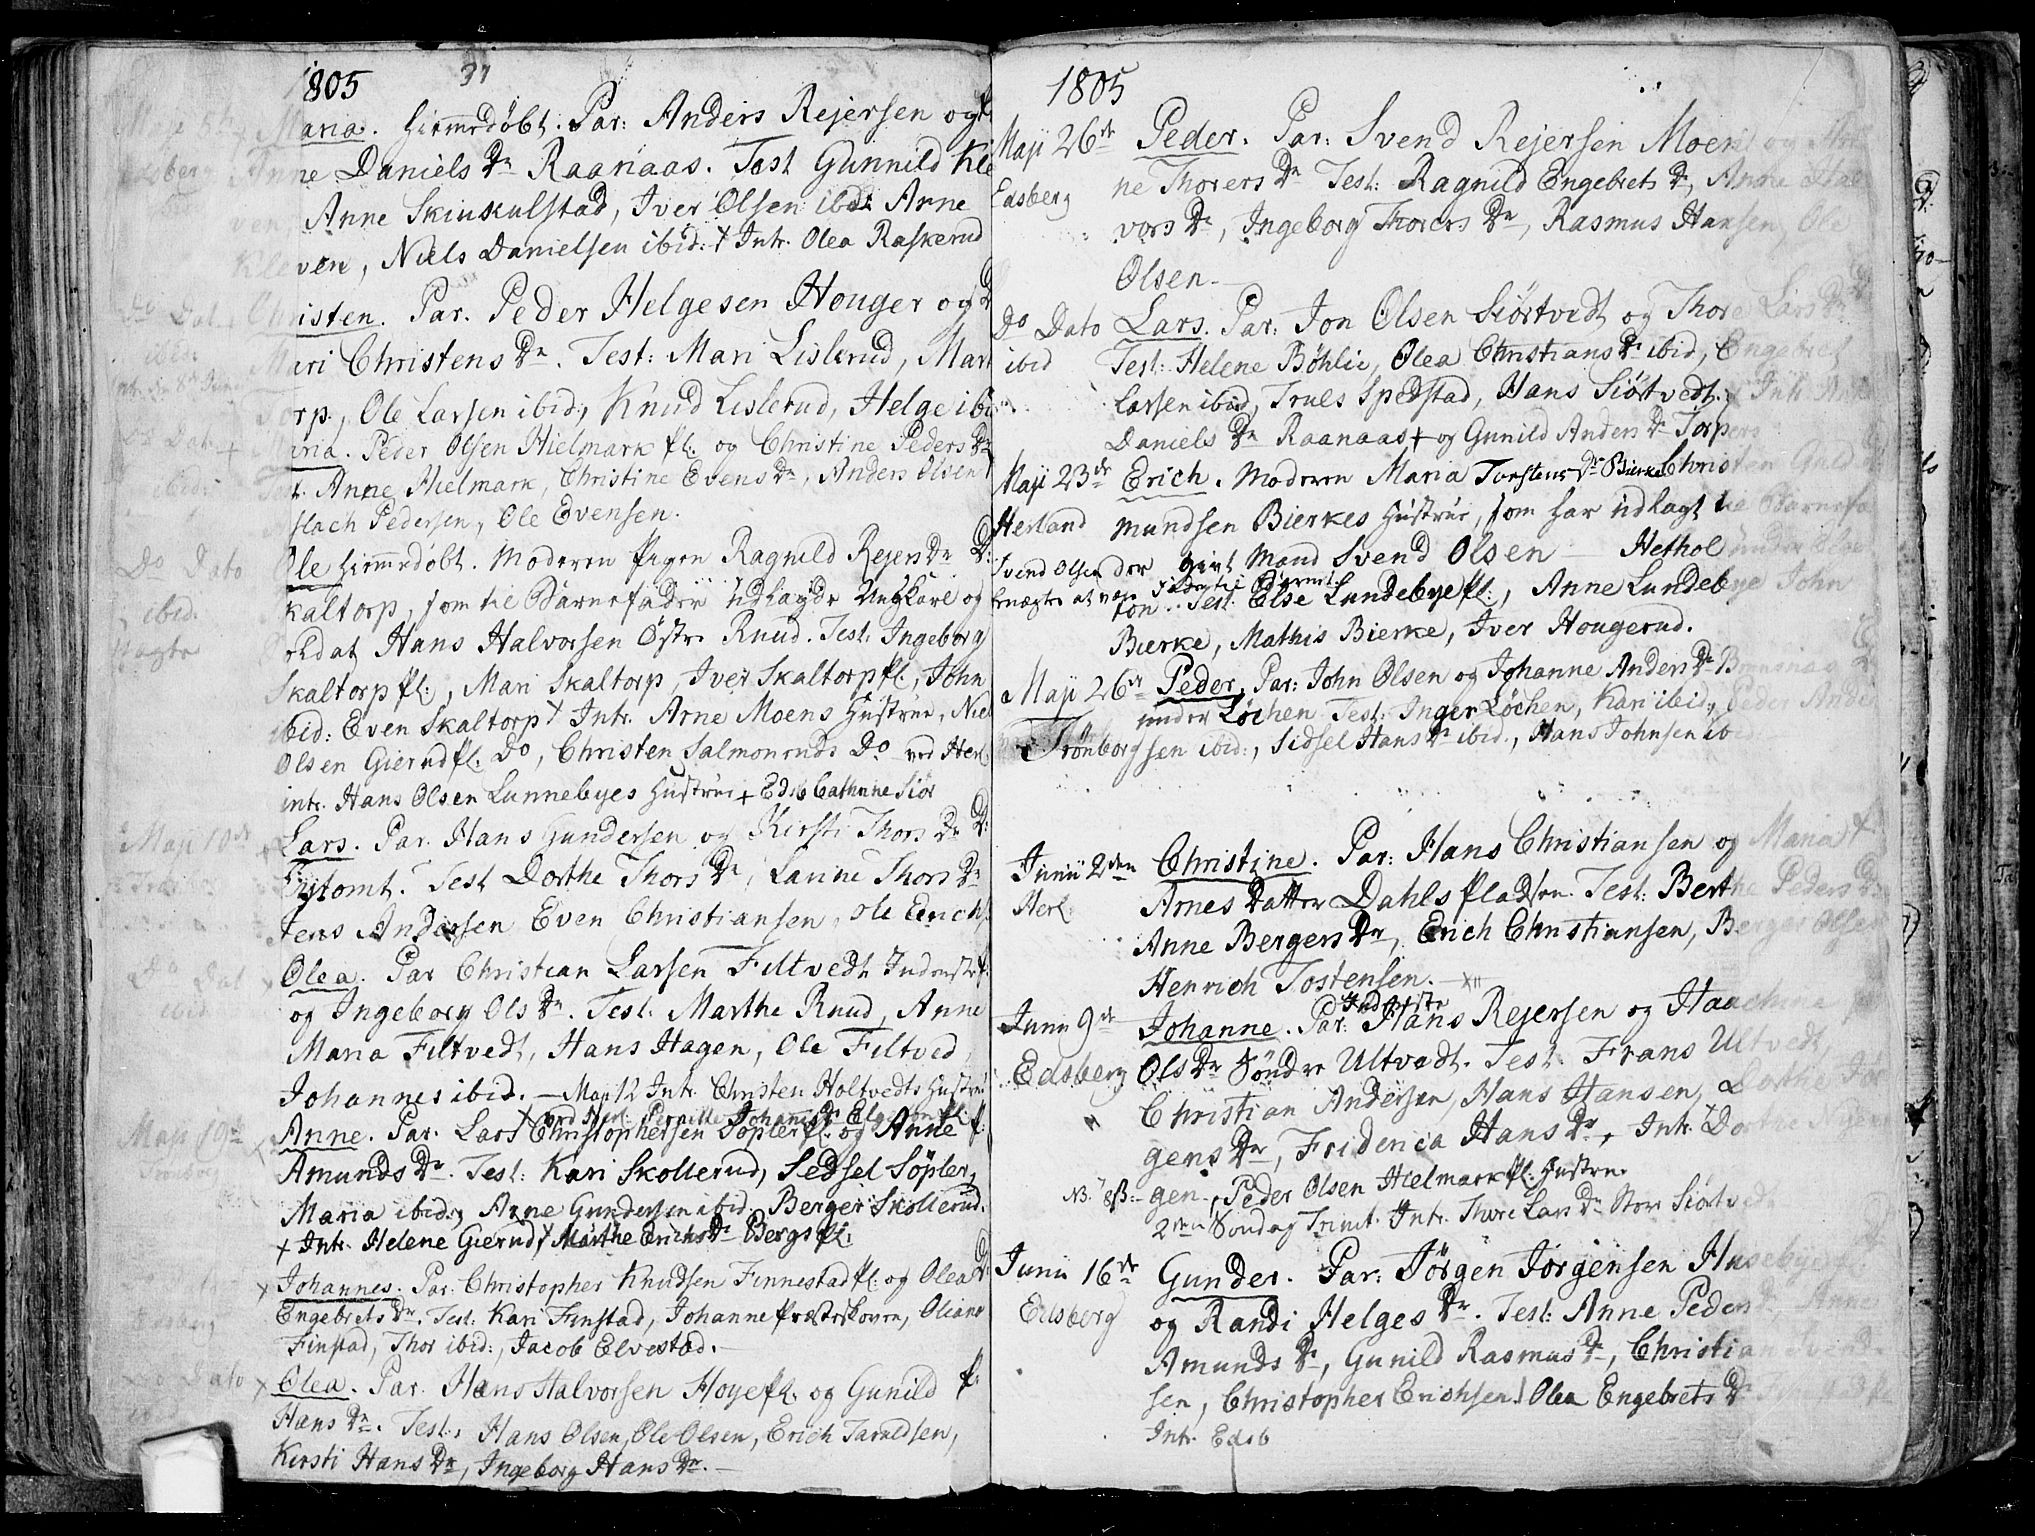 1805 37
Maria. Hiemedöbt. Par: Anders Rejersen og
Anne Daniels Dr Raanaas. Test Gunnild Kle
ven, Anne Skinkulstad, Iver Olsen ibid: Arne
Kleven, Niels Danielsen ibid: + Intr. Olea Raskerud
Do Dato Christen. Par. Peder Helgesen Houger og
ibid: Mari Christens Dr. Test: Mari Lislerud, Mari
Torp, Ole Larsen ibid:, Knud Lislerud, Helge ibid
Do Dato + Maria. Peder Olsen Hielmark pl: og Christine Peders Dr
ibid: Test. Anne Hielmark, Christine Evens Dr, Anders Olsen
Aslach Pedersen, Ole Evensen.
Do Dato Ole Hiemedöbt. Moderen Pigen Ragnild Rejers Dr
ibid. Skaltorp, som til Barnefader udlagde Ungkarl og
Soldat Hans Halvorsen Östre Ruud. Test: Ingeborg
Skaltorp pl:, Mari Skaltorp, Iver Skaltorp pl:, John
ibid: Even Skaltorp + Intr. Arne Moens Hustrue, Niels
Olsen Gierud pl. Do, Christen Salmonruds Do ved Herl.
intr. Hans Olsen Lunnebyes Hustrue + Edsb Cathrine Siör
Maji 10de Lars. Par. Hans Gundersen og Kirsti Thors Dr
Tytomt. Test Dorthe Thors Dr, Karine Thors Dr
Jens Andersen Even Christiansen, Ole Erichs.
Do Dat Olea. Par Christian Larsen Filtvedt Inderste
ibid og Ingeborg Ols Dr. Test: Marthe Ruud, Anne
Maria Filtvedt, Hans Hagen, Ole Filtved,
Johannes ibid. — Maji 12 Intr. Christen Holtvedts Hustrue
+ ved Herl. Pernille Johannes Dr
Maji 19de Anne. Par. Lars Christophersen Söpler pl. og Anne
Trönborg Amunds Dr. Test: Kari Skollerud, Sedsel Söpler,
Maria ibid:, Arne Gundersen ibid. Berger Skollerud.
+ Intr. Helene Gierud, Marthe Erichs Dr Bergs pl:
Johannes. Par. Christopher Knudsen Finnestad pl: og Olea
Edsberg Engebrets Dr. Test: Kari Finstad, Johanne Præsteskoven, Oliane
Finstad, Thor ibid:, Jacob Elvestad.
Do Dato Olea. Par. Hans Halvorsen Hoye pl. og Gunild
ibid Hans Dr. Test: Hans Olsen, Ole Olsen, Erich Taraldsen,
Kirsti Hans Dr, Ingeborg Hans Dr.
1805
Maji 26de Peder. Par: Svend Rejersen Moen og
Edsberg ne Thorers Dr Test: Ragnild Engebrets Dr, Anne Hal
vors Dr, Ingeborg Thorers Dr, Rasmus Hansen, Ole
Olsen.
Do Dato Lars. Par: Jon Olsen Siörtvedt og Thore Lars Dr
ibid Test: Helene Böhlie, Olea Christians Dr ibid, Engebret
Larsen ibid, Truls Spedstad, Hans Siörtvedt. Intr
Daniels Dr Raanaas + og Gunild Anders Dr Torper
Maji 23de Erich. Moderen Maria Torstens Dr Bierke Christen
Herland mundsen Bierkes Hustrue, som har udlagt til Barnefa
Svend Olsen der givt Mand Svend Olsen Hethol under
benægte at være Fader til Barnet
ton. Test. Else Lundebye pl:, Anne Lundebye John
Bierke, Mathis Bierke, Iver Hougerud.
Maji 26de Peder. Par: John Olsen og Johanne Anders Dr
under Löchen. Test: Inger Löchen, Kari ibid:, Peder Ander
Trönborg sen ibid:, Sidsel Hans Dr ibid., Hans Johnsen ibid
Junii 2den Christine. Par: Hans Christiansen og Maria
Herl: Arnes Datter Dahls Pladsen. Test: Berthe Peders Dr
Anne Bergers Dr, Erich Christiansen, Berger Olsen
Henrich Tostensen.
Inderste
Junii 9de Johanne. Par: Hans Rejersen og Haachine
Edsberg Ols Dr Söndre Ultvedt. Test: Frans Ultvedt,
Christian Andersen, Hans Hansen, Dorthe Jör
gens Dr, Friderica Hans Dr, Intr. Dorthe
NB. gen., Peder Olsen Hielmark pl: Hustrue
2den Söndag Trinit. Intr. Thore Lars Dr Store Siörtved
Junii 16de Gunder. Par: Jörgen Jörgensen Husebye
Edsberg og Randi Helges Dr. Test: Anne Peders Dr Anne
Amunds Dr, Gunild Rasmus Dr, Christian Svend
sen, Christopher Erichsen. Olea Engebrets Dr
Intr. Edsb